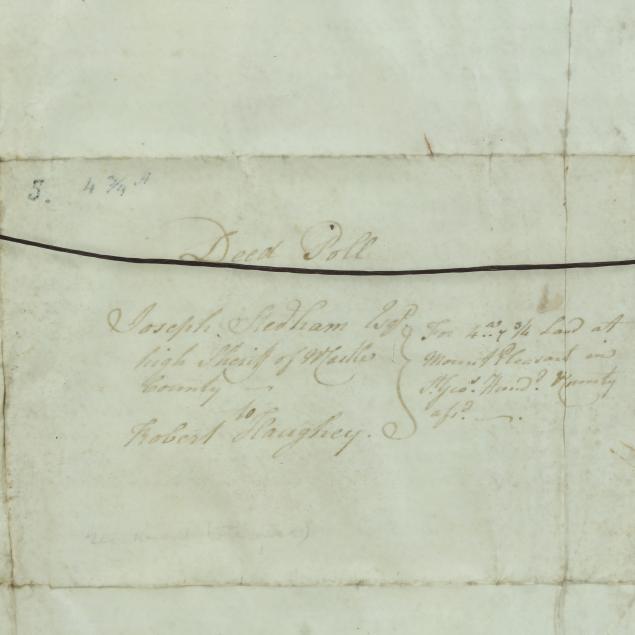 5. 4 3/4 A
Deed Poll
Joseph Stedham Esqr.
high Sheriff of
County
to
Robert Haughey.
For 4 as. & 3/4 Land at
Mount Pleasant in
St. Geos. Hund. County
afsd.